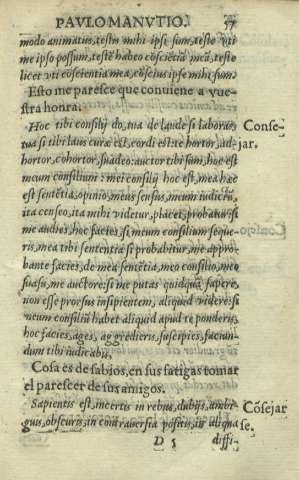 PAVLO MANVTIO. 57
modo animatus, testis mihi ipse sum, teste vti
me ipso possum, testē habeo cōsciētiā meā, teste
licet vti cōscientia mea, cōscius ipse mihi sum.
Esto me paresce que conuiene a vue-
stra honra.
Hoc tibi consilij do, tua de laude si laboras,
Conse-
tua si tibi laus curæ est, cordi est: te hortor, ad-
jar.
hortor, cohortor, suadeo: auctor tibi sum, hoc est
meum consilium: mei consilij hoc est, mea hæc
est sentētia, opinio, meus sensus, meum iudiciū,
ita censeo, ita mihi videtur, placet, probatur, si
me audies, hoc facies, si meum consilium seque-
ris, mea tibi sententia si probabitur, me appro-
bante facies, de mea sentētia, meo consilio, meo
suasu, me auctore: si me putas quidquā sapere,
non esse prorsus insipientem, aliquid videre: si
meum consiliū habet aliquid apud te ponderis,
hoc facies, ages, aggredieris, suscipies, faciun-
dum tibi iudicabis,
Cosa es de sabios, en sus fatigas tomar
el parescer de sus amigos.
Sapientis est, incertis in rebus, dubijs, ambi-
Cōsejar
guis, obscuris, in contrauersia positis, in aliqua
se.
D 5 diffi-